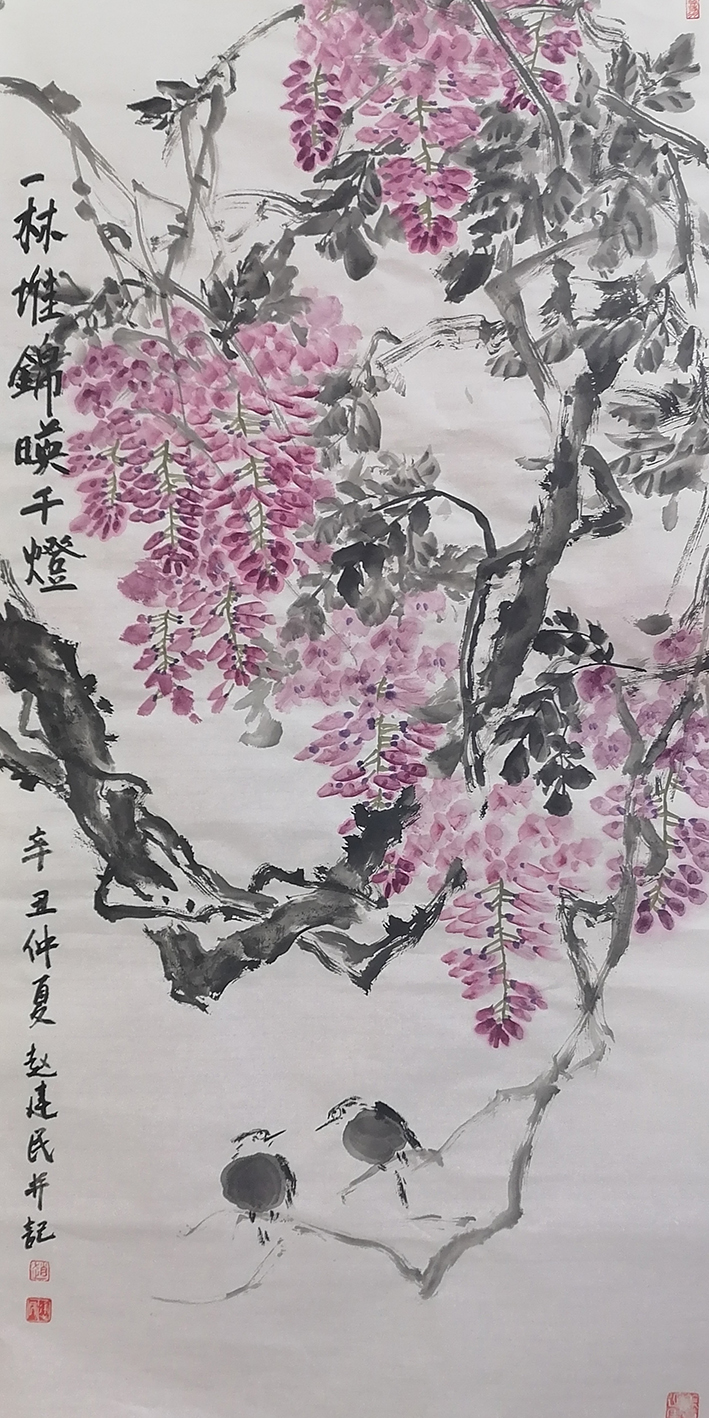 一林堆錦映千燈
辛丑仲夏赵建民并記